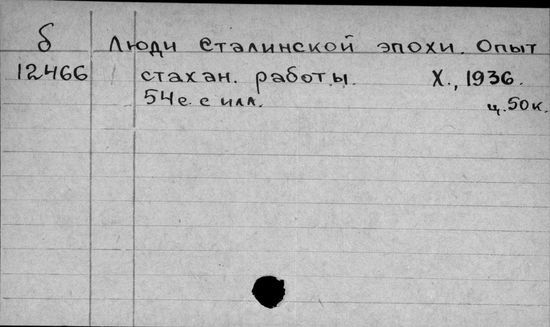 б Люди Сталинской эпохи. Опыт
12466 стахан. работы. Х., 1936.
54с. с илл. ц. 50к.